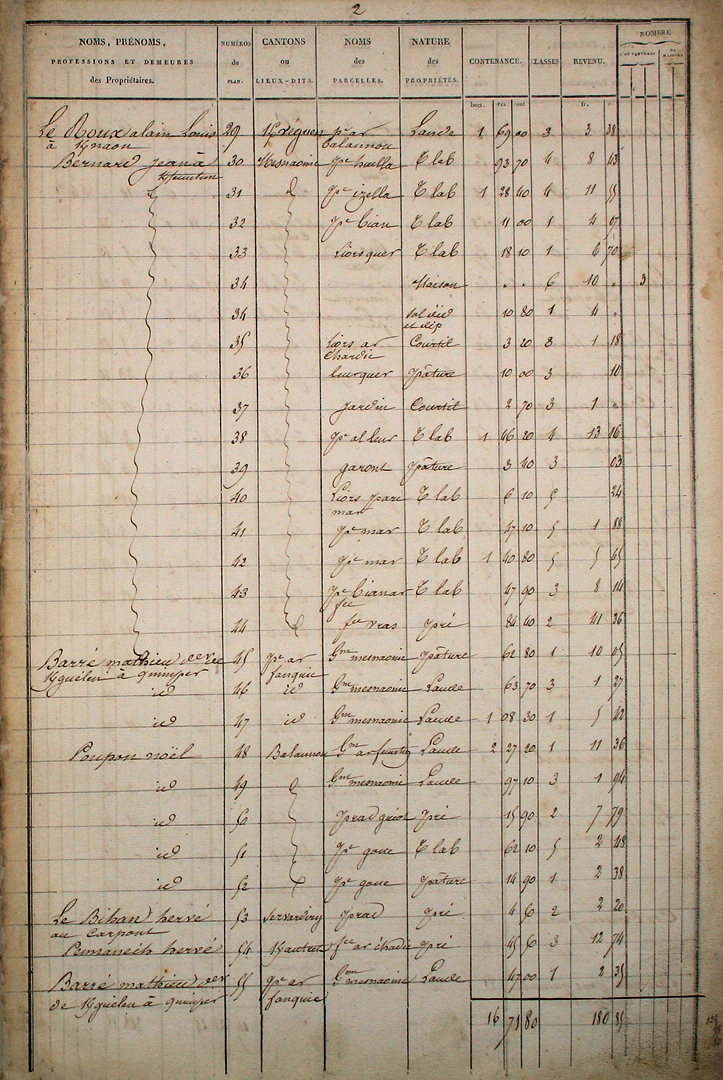 2
NOMS, PRÉNOMS, PROFESSIONS ET DEMEURES des Propriétaires. NUMÉROS du PLAN. CANTONS ou LIEUX-DITS. NOMS des PARCELLES. NATURE des PROPRIÉTÉS. CONTENANCE. CLASSES. REVENU. NOMBRE
hect. ares cent fr. c.
Le Roux alain Louis 29 pc ar Lande 1 69 00 3 3 38
à balannou
Bernard jean à 30 Mesnaonic pc huella T lab 93 70 4 8 43
31 pc izella T lab 1 28 40 4 11 55
32 pc bian T lab 11 00 1 4 07
33 Liorsguer T lab 18 10 1 6 70
34 Maison . . 6 10 . 3
34 sol 10 80 1 4 .
35 liors ar Courtil 3 20 8 1 18
36 leurguer pâture 10 00 3 10
37 jardin Courtil 2 70 3 1 .
38 pc al leur T lab 1 46 20 4 13 16
39 garont pâture 3 40 3 03
40 Liors parc T lab 6 10 5 24
mar
41 pc mar T lab 47 10 5 1 88
42 pc mar T lab 1 40 80 5 5 65
43 pc bian ar T lab 47 90 3 8 14
44 vras pré 84 40 2 41 36
Barré mathieu 45 pc ar Gm mesnaonic pâture 62 80 1 10 05
à quimper fanquic
id 46 id Gm mesnaonic Lande 63 70 3 1 27
id 47 id Gm mesnaonic Lande 1 08 30 1 5 42
Poupon noël 48 Balannou Gm ar Lande 2 27 20 1 11 36
id 49 Gm mesnaonic Lande 97 10 3 1 94
id 50 prad pré 15 90 2 7 79
id 51 pc goue T lab 62 10 5 2 48
id 52 pc goue pâture 14 90 1 2 38
Le Bihan hervé 53 prad pré 4 50 2 2 20
au Carpont
hervé 54 pré 45 50 3 12 74
Barré mathieu 55 pc ar Gm mesnaonic Lande 47 00 1 2 35
de à quimper fanquic
16 71 80 180 85